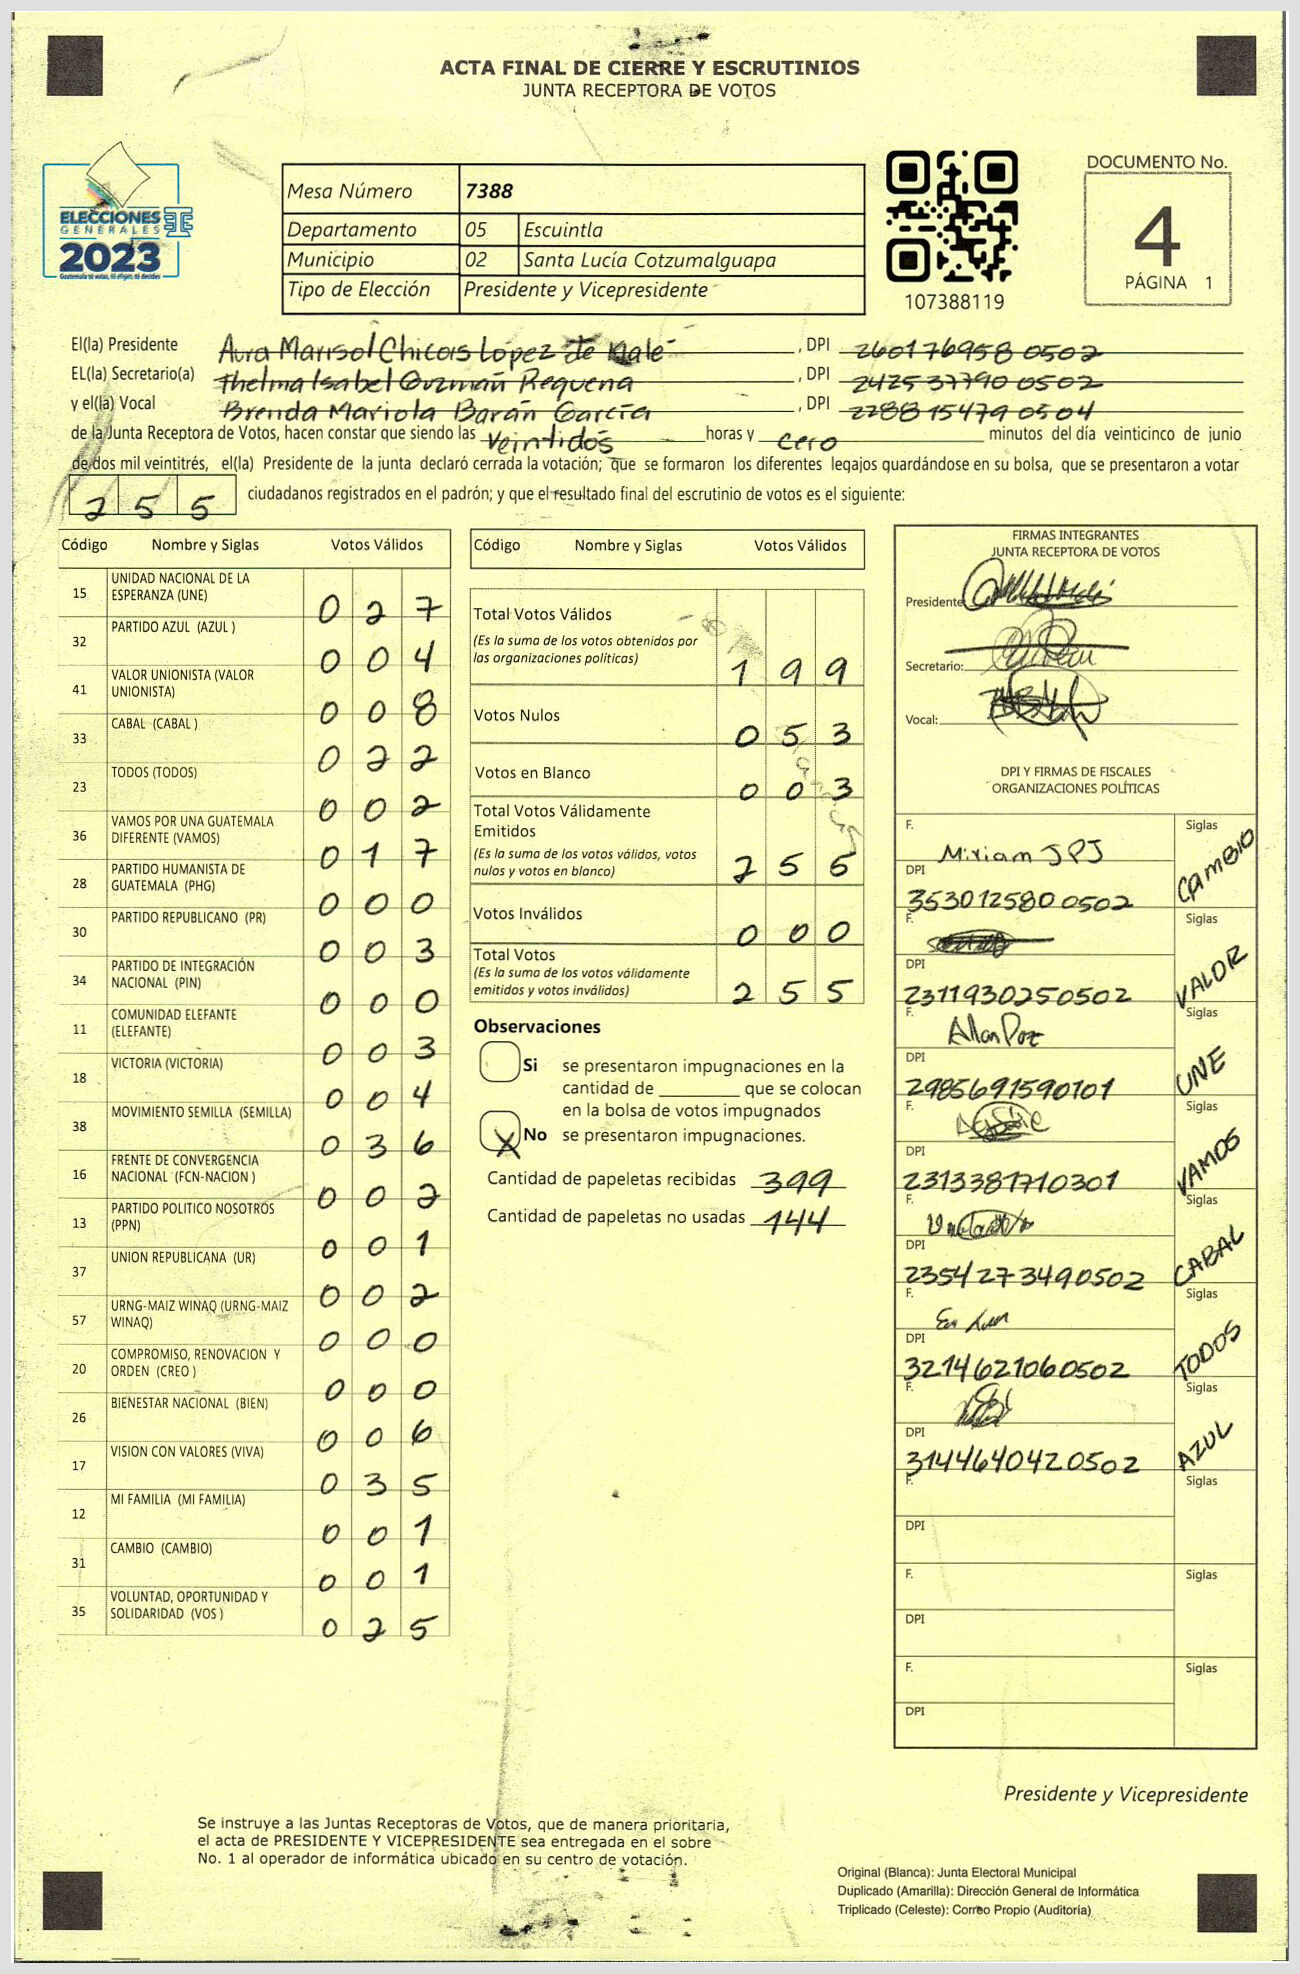 ACTA FINAL DE CIERRE Y ESCRUTINIOS
JUNTA RECEPTORA DE VOTOS
ELECCIONES
GENERALES
2023
Guatemala te votas, tú eliges, tú decides
TSE
Mesa Número 7388
Departamento 05 Escuintla
Municipio 02 Santa Lucía Cotzumalguapa
Tipo de Elección Presidente y Vicepresidente
107388119
DOCUMENTO No.
4
PÁGINA 1
El(la) Presidente Aura Marisol Chicas López de Malé , DPI 2601769580502
EL(la) Secretario(a) Thelma Isabel Guzmán Requena , DPI 2425377900502
y el(la) Vocal Brenda Mariola Barán García , DPI 2288154790504
de la Junta Receptora de Votos, hacen constar que siendo las veintidós horas y cero minutos del día veinticinco de junio
de dos mil veintitrés, el(la) Presidente de la junta declaró cerrada la votación; que se formaron los diferentes legajos guardándose en su bolsa, que se presentaron a votar
255 ciudadanos registrados en el padrón; y que el resultado final del escrutinio de votos es el siguiente:
Código Nombre y Siglas Votos Válidos
15 UNIDAD NACIONAL DE LA
ESPERANZA (UNE) 0 2 7
32 PARTIDO AZUL (AZUL ) 0 0 4
41 VALOR UNIONISTA (VALOR
UNIONISTA) 0 0 8
33 CABAL (CABAL ) 0 2 2
23 TODOS (TODOS) 0 0 2
36 VAMOS POR UNA GUATEMALA
DIFERENTE (VAMOS) 0 1 7
28 PARTIDO HUMANISTA DE
GUATEMALA (PHG) 0 0 0
30 PARTIDO REPUBLICANO (PR) 0 0 3
34 PARTIDO DE INTEGRACIÓN
NACIONAL (PIN) 0 0 0
11 COMUNIDAD ELEFANTE
(ELEFANTE) 0 0 3
18 VICTORIA (VICTORIA) 0 0 4
38 MOVIMIENTO SEMILLA (SEMILLA) 0 3 6
16 FRENTE DE CONVERGENCIA
NACIONAL (FCN-NACION ) 0 0 2
13 PARTIDO POLITICO NOSOTROS
(PPN) 0 0 1
37 UNION REPUBLICANA (UR) 0 0 2
57 URNG-MAIZ WINAQ (URNG-MAIZ
WINAQ) 0 0 0
20 COMPROMISO, RENOVACION Y
ORDEN (CREO ) 0 0 0
26 BIENESTAR NACIONAL (BIEN) 0 0 6
17 VISION CON VALORES (VIVA) 0 3 5
12 MI FAMILIA (MI FAMILIA) 0 0 1
31 CAMBIO (CAMBIO) 0 0 1
35 VOLUNTAD, OPORTUNIDAD Y
SOLIDARIDAD (VOS ) 0 2 5
Código Nombre y Siglas Votos Válidos
Total Votos Válidos
(Es la suma de los votos obtenidos por
las organizaciones políticas) 1 9 9
Votos Nulos 0 5 3
Votos en Blanco 0 0 3
Total Votos Válidamente
Emitidos
(Es la suma de los votos válidos, votos
nulos y votos en blanco) 2 5 5
Votos Inválidos 0 0 0
Total Votos
(Es la suma de los votos válidamente
emitidos y votos inválidos) 2 5 5
Observaciones
Si se presentaron impugnaciones en la
cantidad de ________ que se colocan
en la bolsa de votos impugnados
X No se presentaron impugnaciones.
Cantidad de papeletas recibidas 399
Cantidad de papeletas no usadas 144
FIRMAS INTEGRANTES
JUNTA RECEPTORA DE VOTOS
Presidente:
Secretario:
Vocal:
DPI Y FIRMAS DE FISCALES
ORGANIZACIONES POLÍTICAS
F. Miriam JPJ Siglas CAMBIO
DPI 3530125800502
F. Siglas VALOR
DPI 2311930250502
F. Allan Poz Siglas UNE
DPI 2985691590101
F. Siglas VAMOS
DPI 2313381710301
F. Siglas CABAL
DPI 2354273490502
F. Siglas TODOS
DPI 3214621060502
F. Siglas AZUL
DPI 3144640420502
F. Siglas
DPI
F. Siglas
DPI
F. Siglas
DPI
Presidente y Vicepresidente
Se instruye a las Juntas Receptoras de Votos, que de manera prioritaria,
el acta de PRESIDENTE Y VICEPRESIDENTE sea entregada en el sobre
No. 1 al operador de informática ubicado en su centro de votación.
Original (Blanca): Junta Electoral Municipal
Duplicado (Amarilla): Dirección General de Informática
Triplicado (Celeste): Correo Propio (Auditoría)